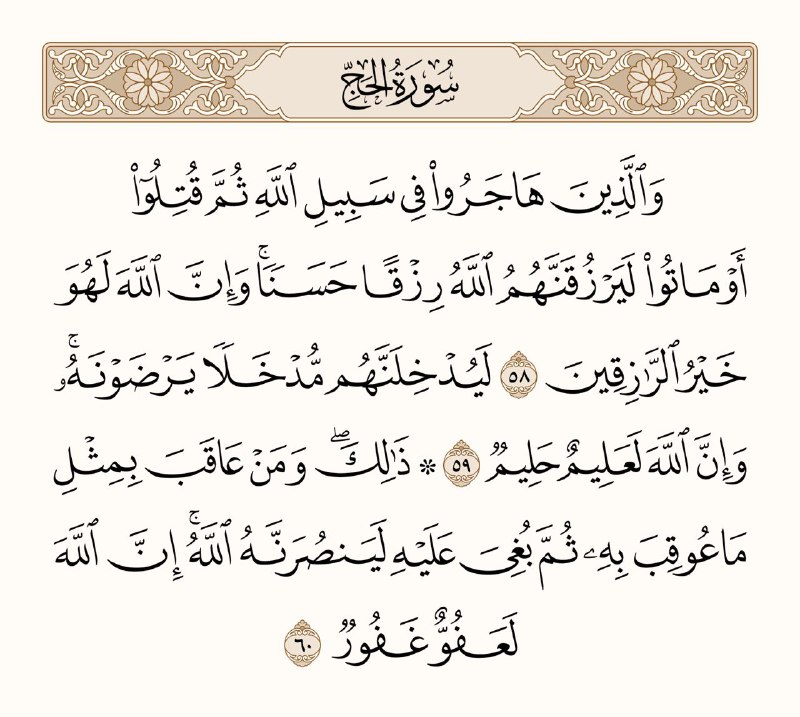 سُورَةُ الحَجِّ
وَٱلَّذِينَ هَاجَرُوا۟ فِى سَبِيلِ ٱللَّهِ ثُمَّ قُتِلُوٓا۟
أَوْ مَاتُوا۟ لَيَرْزُقَنَّهُمُ ٱللَّهُ رِزْقًا حَسَنًا ۚ وَإِنَّ ٱللَّهَ لَهُوَ
خَيْرُ ٱلرَّٰزِقِينَ ٥٨ لَيُدْخِلَنَّهُم مُّدْخَلًا يَرْضَوْنَهُۥ ۚ
وَإِنَّ ٱللَّهَ لَعَلِيمٌ حَلِيمٌ ٥٩ * ذَٰلِكَ ۖ وَمَنْ عَاقَبَ بِمِثْلِ
مَا عُوقِبَ بِهِۦ ثُمَّ بُغِىَ عَلَيْهِ لَيَنصُرَنَّهُ ٱللَّهُ ۚ إِنَّ ٱللَّهَ
لَعَفُوٌّ غَفُورٌ ٦٠